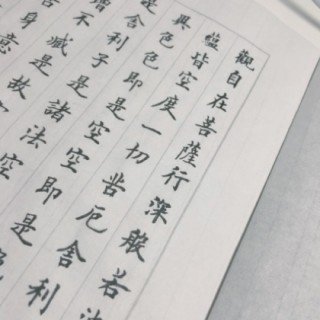 觀自在菩薩行深般若波
蘊皆空度一切苦厄舍利
異色色即是空空即是色
是舍利子是諸法空
增不減是故空
舌身意